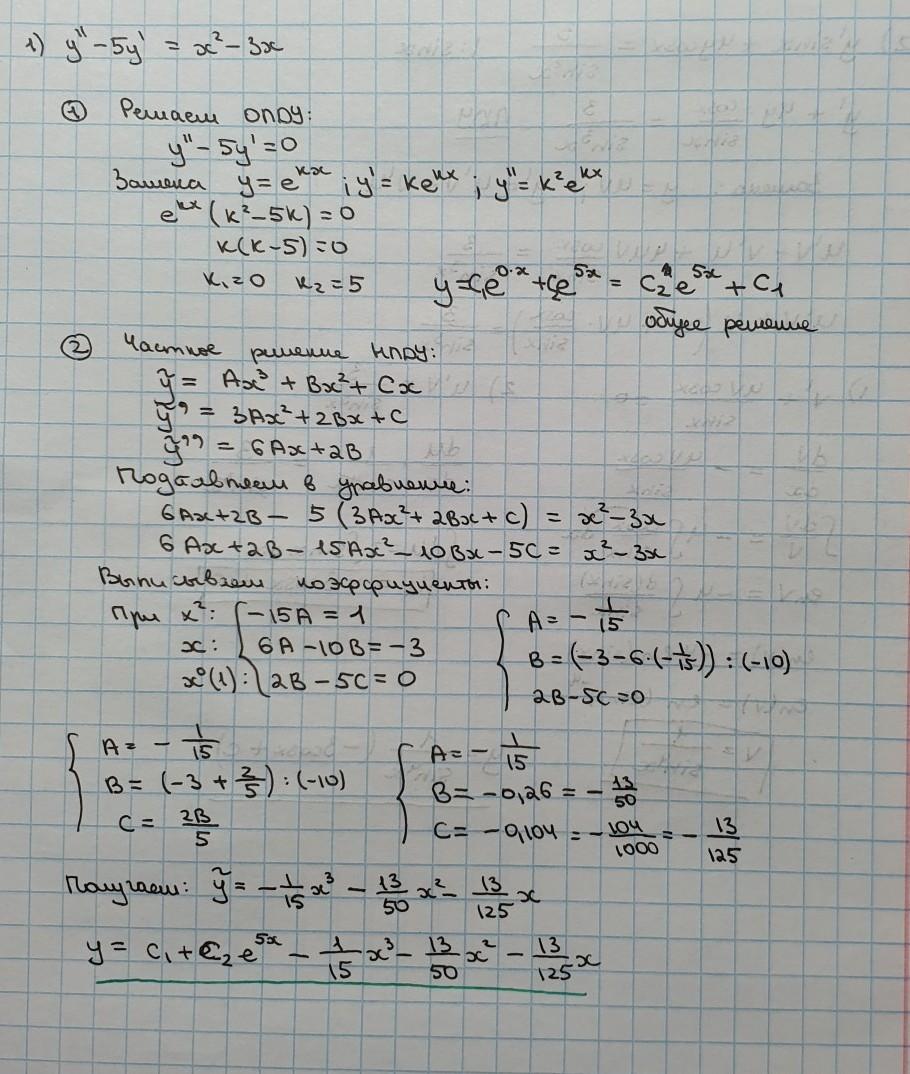 1) y'' - 5y' = x² - 3x
① Решаем ОЛДУ:
y'' - 5y' = 0
Замена y = e^{kx} ; y' = ke^{kx} ; y'' = k²e^{kx}
e^{kx} (k² - 5k) = 0
k(k - 5) = 0
k₁ = 0 k₂ = 5 y = C₁e^{0·x} + C₂e^{5x} = C₂e^{5x} + C₁
общее решение
② Частное решение НЛДУ:
ỹ = Ax³ + Bx² + Cx
ỹ' = 3Ax² + 2Bx + C
ỹ'' = 6Ax + 2B
Подставляем в уравнение:
6Ax + 2B - 5 (3Ax² + 2Bx + C) = x² - 3x
6Ax + 2B - 15Ax² - 10Bx - 5C = x² - 3x
Выписываем коэффициенты:
При x²: { -15A = 1
x: 6A - 10B = -3
x⁰(1): 2B - 5C = 0
{ A = -1/15
B = (-3 - 6·(-1/15)) : (-10)
2B - 5C = 0
{ A = -1/15
B = (-3 + 2/5) : (-10)
C = 2B/5
{ A = -1/15
B = -0,26 = -13/50
C = -0,104 = -104/1000 = -13/125
Получаем: ỹ = -1/15 x³ - 13/50 x² - 13/125 x
y = C₁ + C₂e^{5x} - 1/15 x³ - 13/50 x² - 13/125 x